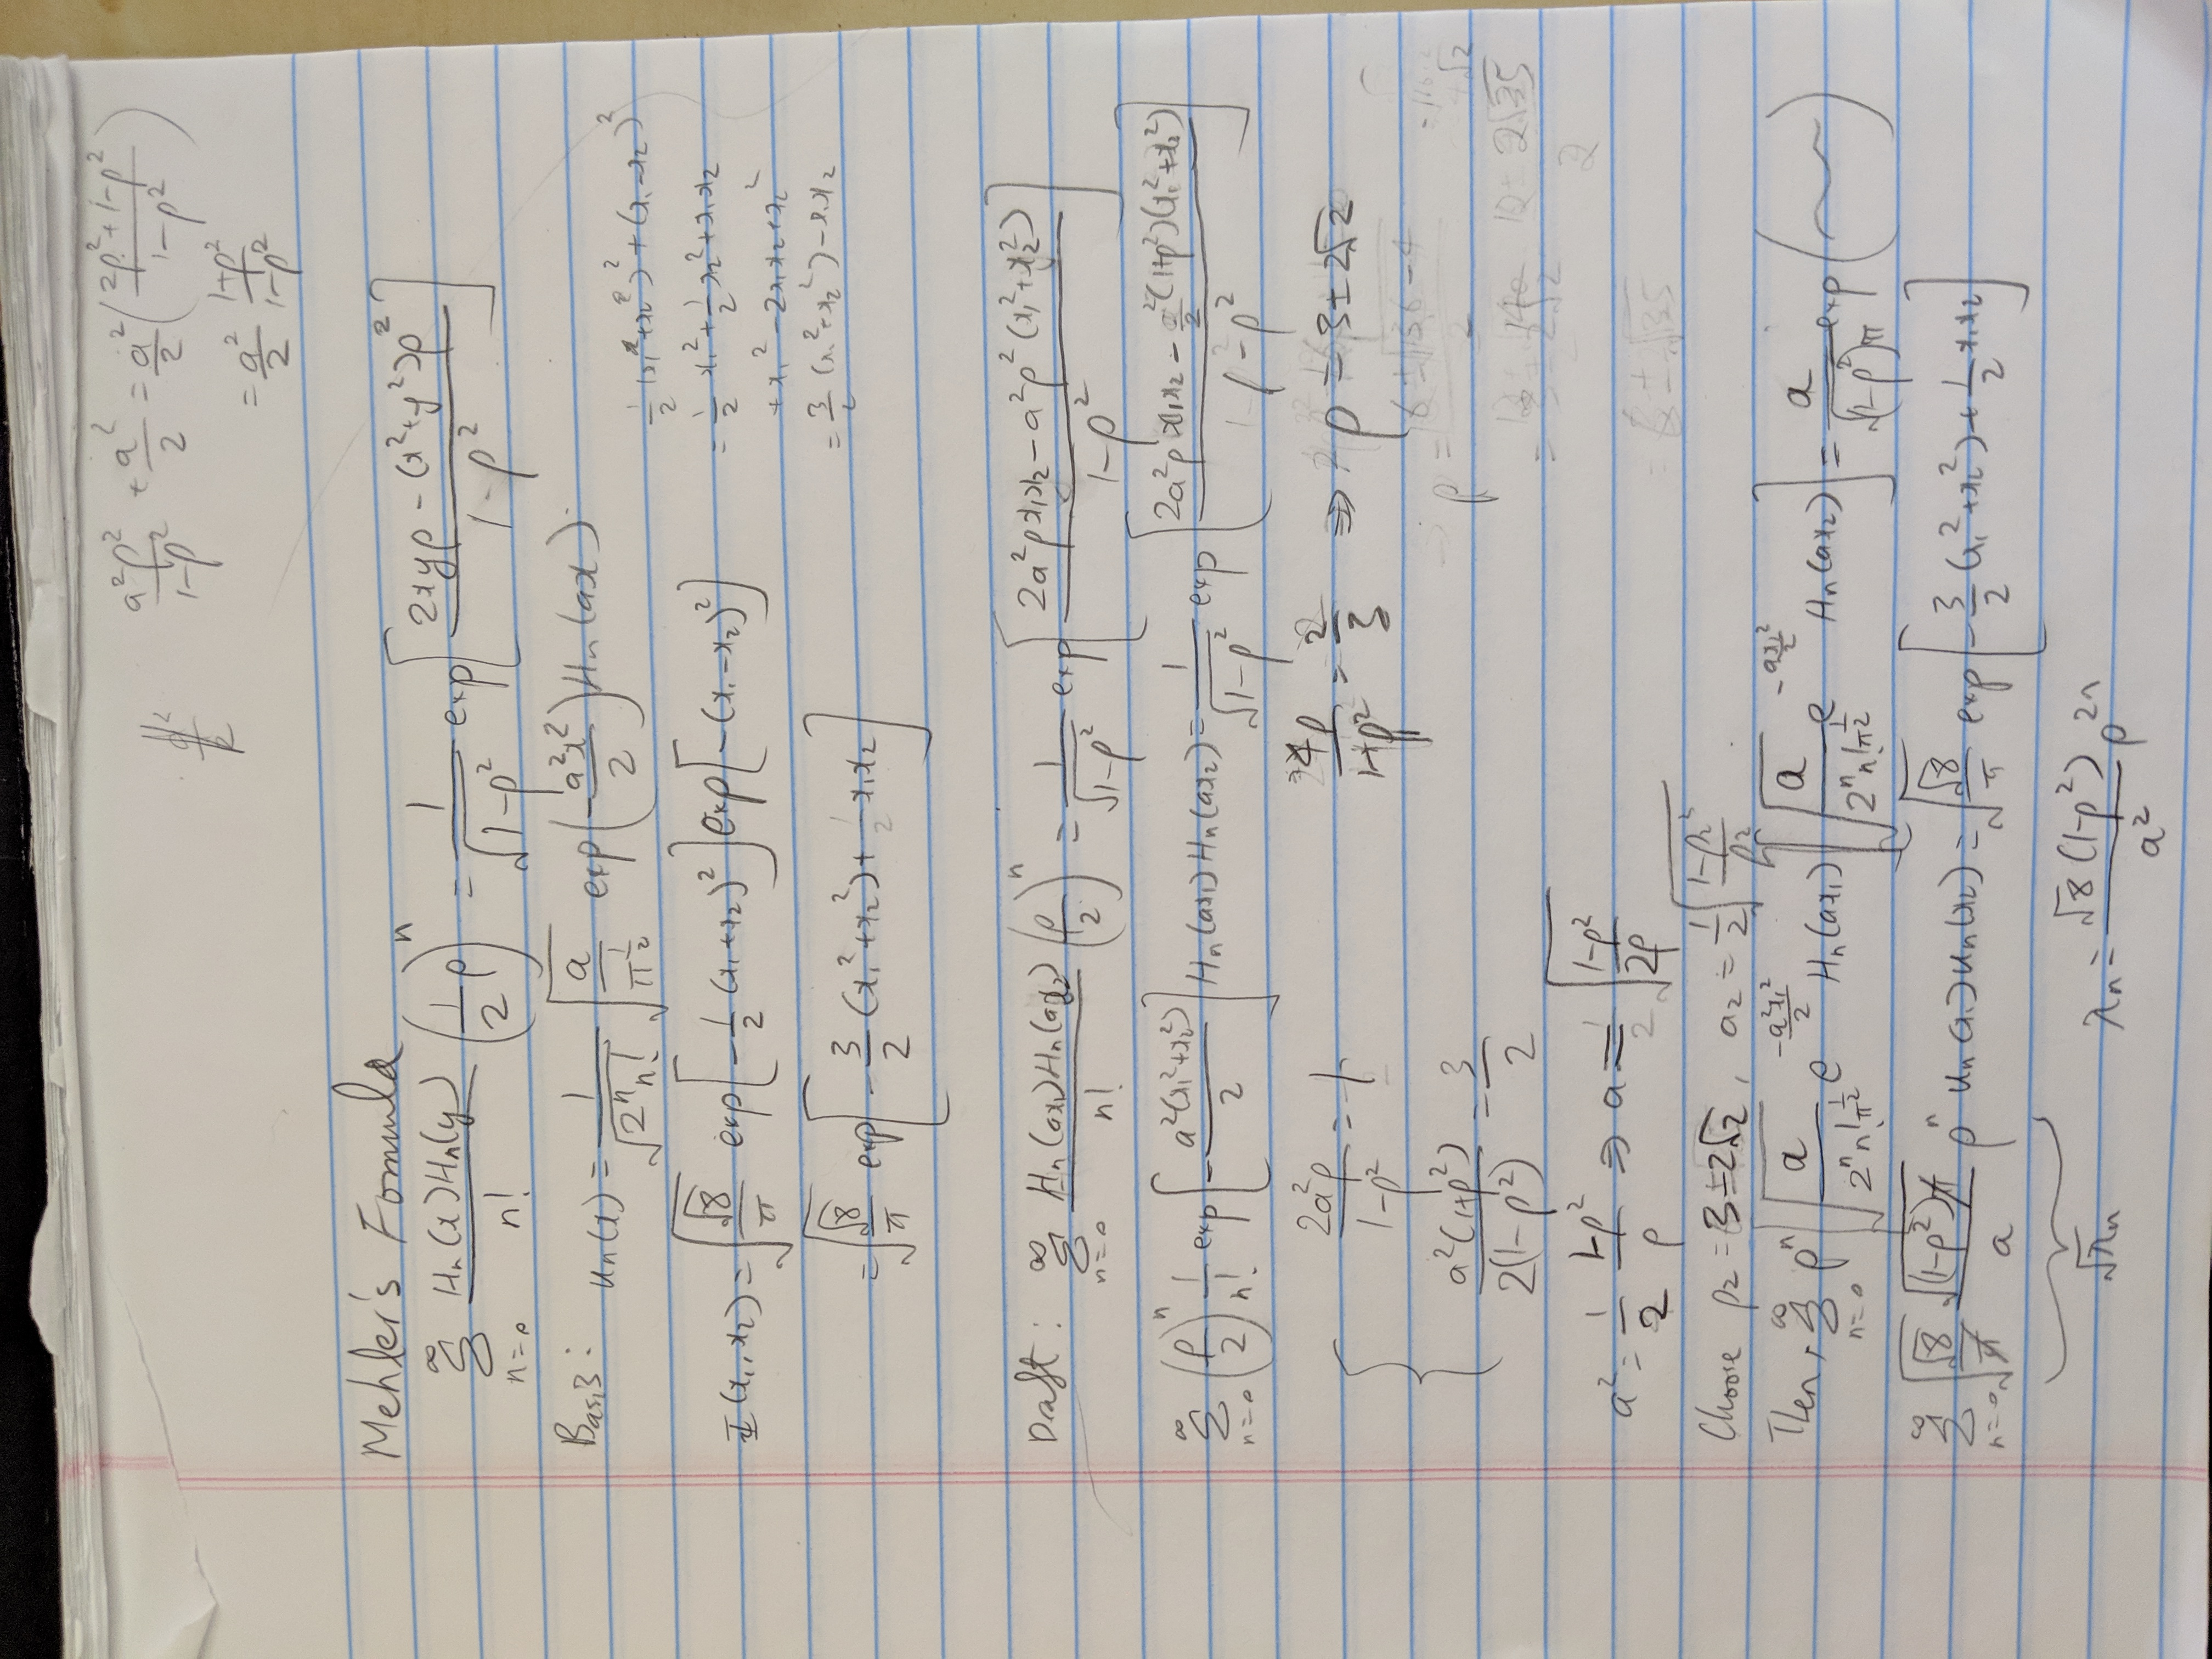 a²ρ²/(1-ρ²) + a²/2 = a²/2 ((2ρ²+1-ρ²)/(1-ρ²))
= a²/2 (1+ρ²)/(1-ρ²)
Mehler's Formula
∑_{n=0}^∞ Hn(x)Hn(y)/n! (1/2 ρ)^n = 1/√(1-ρ²) exp[(2xyρ - (x²+y²)ρ²)/(1-ρ²)]
Basis: un(x) = 1/√(2^n n!) √(a/π^{1/2}) exp(-a²x²/2) Hn(ax)
Φ(x₁, x₂) = √(√8/π) exp[-1/2 (x₁+x₂)²] exp[-(x₁-x₂)²]
= √(√8/π) exp[-3/2 (x₁²+x₂²) + x₁x₂]
1/2 (x₁+x₂)² + (x₁-x₂)²
= 1/2 x₁² + 1/2 x₂² + x₁x₂
+ x₁² - 2x₁x₂ + x₂²
= 3/2 (x₁²+x₂²) - x₁x₂
Draft: ∑_{n=0}^∞ Hn(ax₁)Hn(ax₂)/n! (ρ/2)^n = 1/√(1-ρ²) exp[(2a²ρx₁x₂ - a²ρ²(x₁²+x₂²))/(1-ρ²)]
∑_{n=0}^∞ (ρ/2)^n 1/n! exp[-a²(x₁²+x₂²)/2] Hn(ax₁)Hn(ax₂) = 1/√(1-ρ²) exp[(2a²ρx₁x₂ - a²/2 (1+ρ²)(x₁²+x₂²))/(1-ρ²)]
2a²ρ/(1-ρ²) = 1
4ρ/(1+ρ²) = 2/3 ⇒ ρ = 3±2√2
a²(1+ρ²)/(2(1-ρ²)) = 3/2
a² = 1/2 (1-ρ²)/ρ ⇒ a = √((1-ρ²)/2ρ)
Choose ρ₂ = 3±2√2, a₂ = 1/2 √((1-ρ₂²)/ρ₂)
Then, ∑_{n=0}^∞ ρ^n [√(a/(2^n n! π^{1/2})) e^{-a²x₁²/2} Hn(ax₁)] [√(a/(2^n n! π^{1/2})) e^{-ax₁²/2} Hn(ax₂)] = a/√((1-ρ²)π) exp( )
∑_{n=0}^∞ √(√8/π) √((1-ρ²)π)/a ρ^n un(x₁)un(x₂) = √(√8/π) exp[-3/2 (x₁²+x₂²) + 1/2 x₁x₂]
√λn λn = √8(1-ρ²)/a² ρ^{2n}